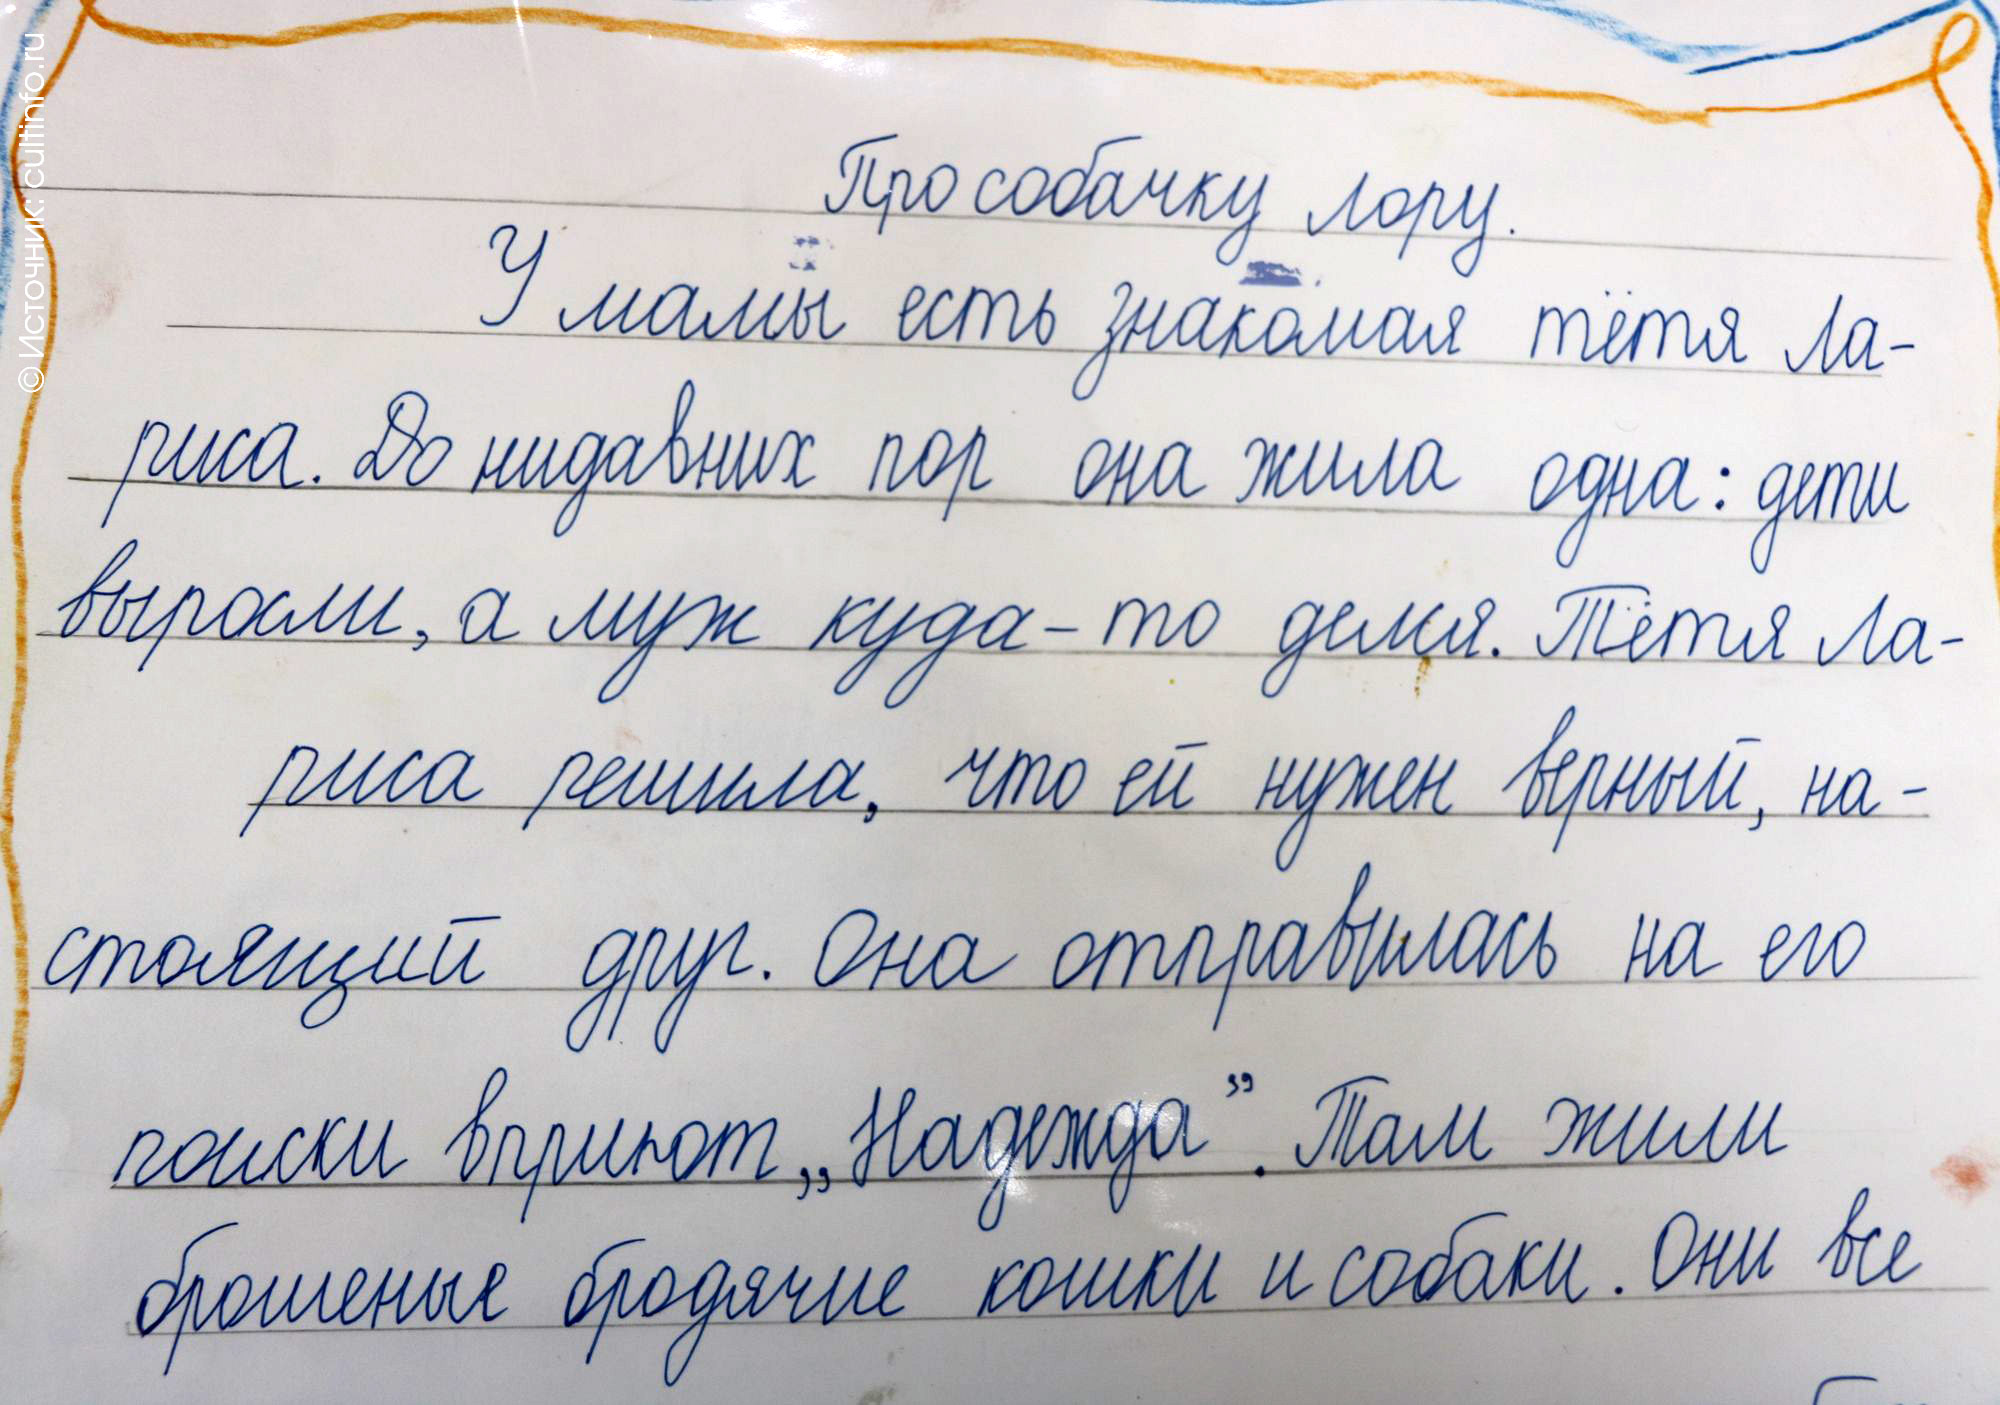 © Источник: cultinfo.ru
Про собачку Лору.
У мамы есть знакомая тётя Ла-
риса. До нидавних пор она жила одна: дети
выросли, а муж куда-то делся. Тётя Ла-
риса решила, что ей нужен верный, на-
стоящий друг. Она отправилась на его
поиски вприют „Надежда”. Там жили
брошеные бродячие кошки и собаки. Они все